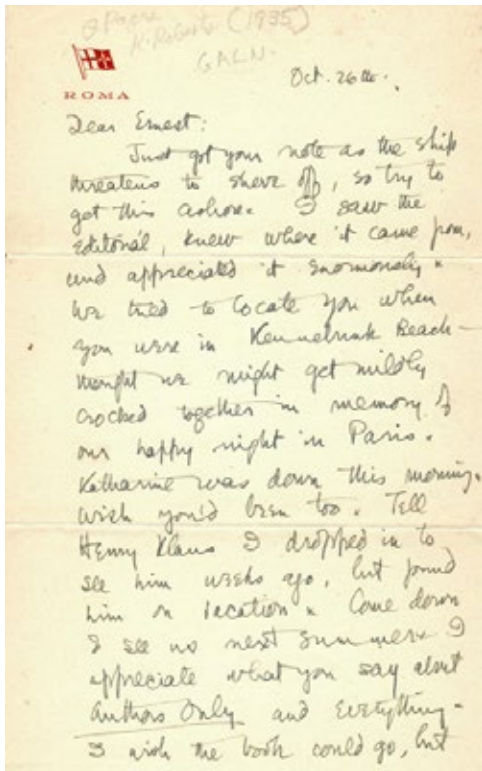 K. Roberts (1935)
GALN.
ROMA
Oct. 26th.
Dear Ernest:
Just got your note as the ship
threatens to shove off, so try to
get this ashore. I saw the
editorial, knew where it came from,
and appreciated it enormously.
We tried to locate you when
you were in Kennebunk Beach —
thought we might get mildly
crocked together in memory of
our happy night in Paris.
Katharine was down this morning.
Wish you'd been too. Tell
Henry Klaus I dropped in to
see him weeks ago, but found
him on vacation. Come down
& see us next summer. I
appreciate what you say about
Authors Only and everything.
I wish the book could go, but